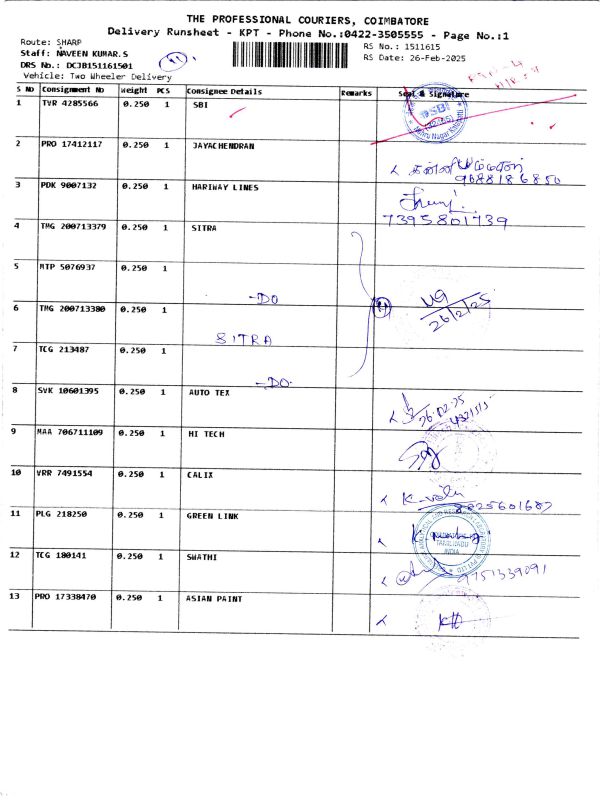 THE PROFESSIONAL COURIERS, COIMBATORE
Delivery Runsheet - KPT - Phone No.:0422-3505555 - Page No.:1
Route: SHARP
Staff: NAVEEN KUMAR.S
DRS No.: DCJB151161501
Vehicle: Two Wheeler Delivery
RS No.: 1511615
RS Date: 26-Feb-2025
S No Consignment No Weight PCS Consignee Details Remarks Seal & Signature
1 TVR 4285566 0.250 1 SBI
SBI
Nehru Nagar
2 PRO 17412117 0.250 1 JAYACHENDRAN
9688186850
3 PDK 9007132 0.250 1 HARIWAY LINES
7395801739
4 TMG 200713379 0.250 1 SITRA
5 MTP 5076937 0.250 1
-DO
6 TMG 200713380 0.250 1
SITRA
26/2/25
7 TCG 213487 0.250 1
-DO-
8 SVK 10601395 0.250 1 AUTO TEX
26.02.25
9 MAA 706711109 0.250 1 HI TECH
10 VRR 7491554 0.250 1 CALIX
8825601687
11 PLG 218250 0.250 1 GREEN LINK
TAMILNADU
INDIA
12 TCG 180141 0.250 1 SWATHI
9751339091
13 PRO 17338470 0.250 1 ASIAN PAINT